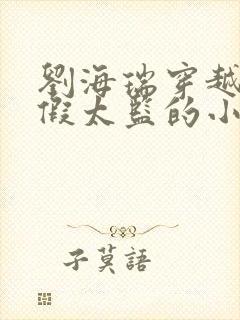 劉海瑞穿越
假太監的小
子莫語